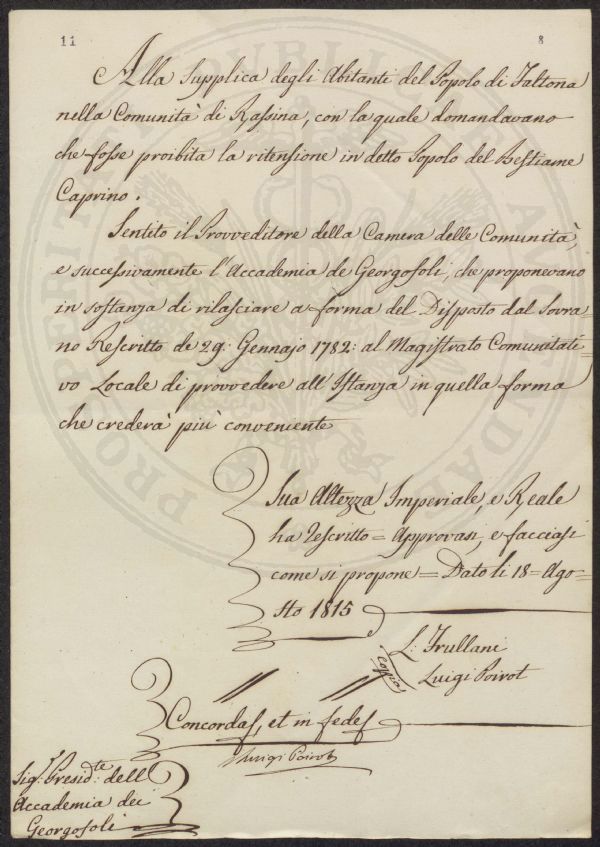 11 8
Alla Supplica degli Abitanti del Popolo di Faltona
nella Comunità di Rassina, con la quale domandavano
che fosse proibita la ritensione in detto Popolo del Bestiame
Caprino.
Sentito il Provveditore della Camera delle Comunità,
e successivamente l'Accademia de Georgofoli, che proponevano
in sostanza di rilasciare a forma del Disposto dal Sovra=
no Rescritto de 29: Gennajo 1782: al Magistrato Comunitati=
vo Locale di provvedere all'Istanza in quella forma
che crederà più conveniente
Sua Altezza Imperiale, e Reale
ha Rescritto = Approvasi, e facciasi
come si propone = Dato li 18 = Ago=
sto 1815
L: Frullani
copia
Luigi Poirot
Concordat, et in fidem
Luigi Poirot
Sig.r Presid.te dell'
Accademia dei
Georgofoli
PROSPERITATI PUBLICAE AUGENDAE